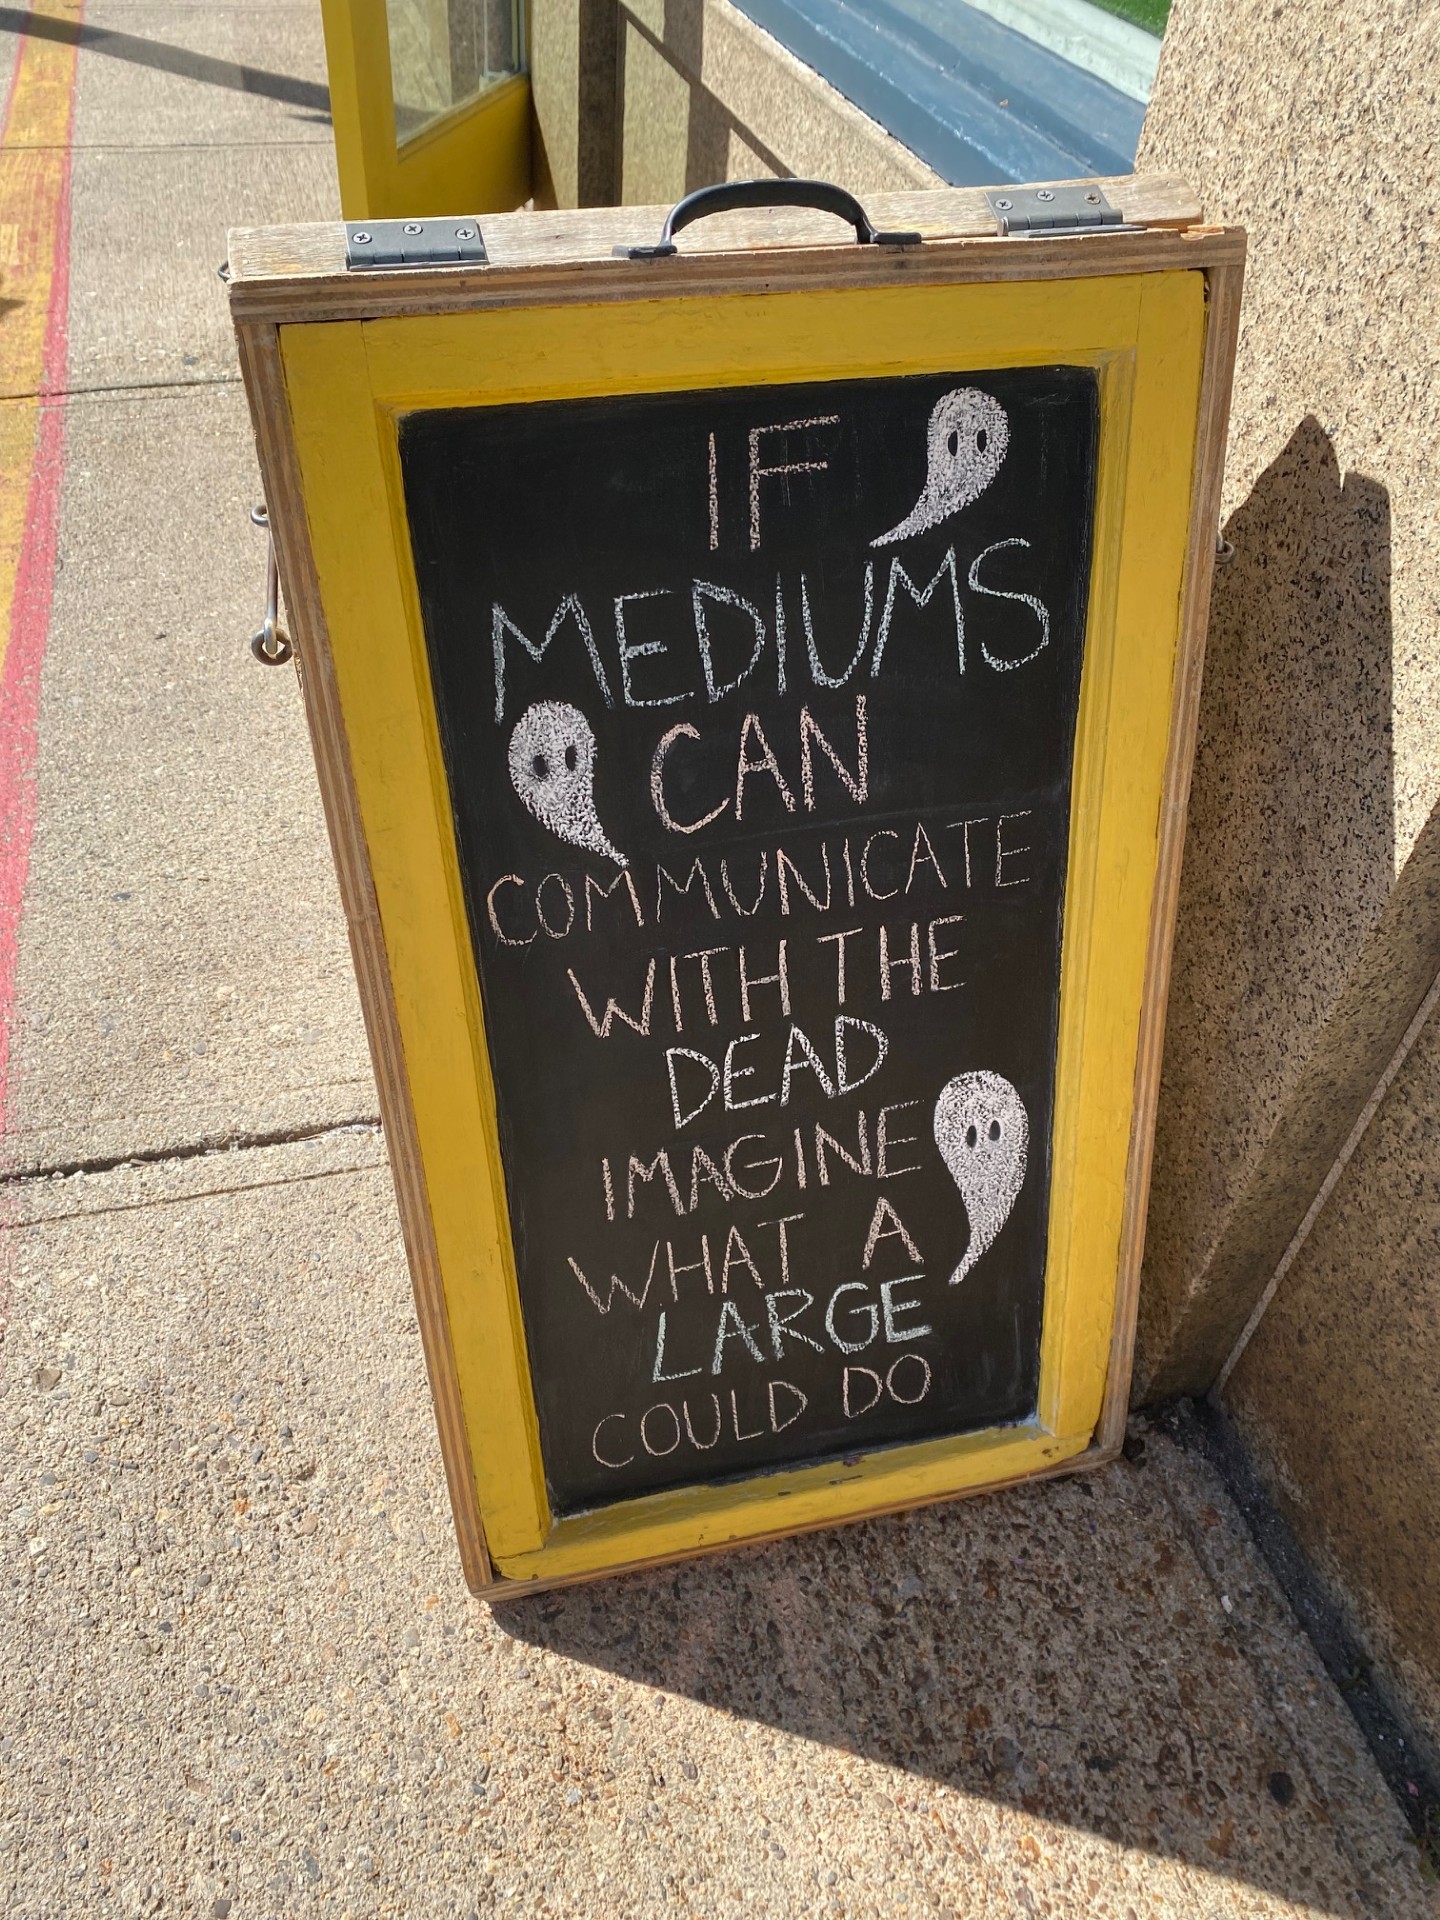 IF
MEDIUMS
CAN
COMMUNICATE
WITH THE
DEAD
IMAGINE
WHAT A
LARGE
COULD DO